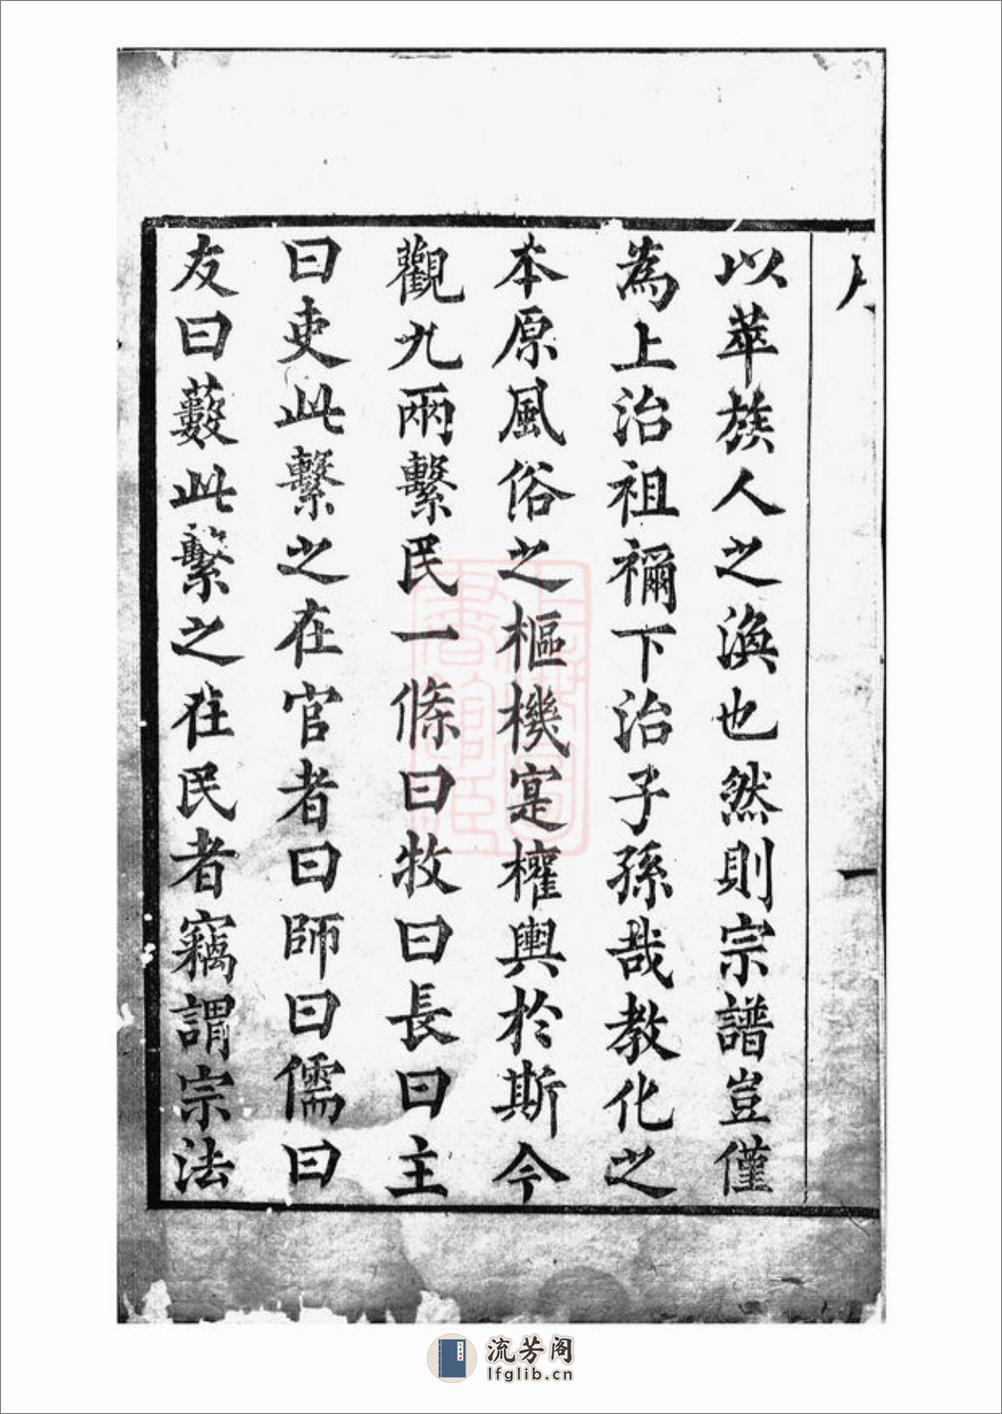 一
以萃族人之渙也然則宗譜豈僅
為上治祖禰下治子孫哉教化之
本原風俗之樞機寔權輿於斯今
觀九兩繫民一條曰牧曰長曰主
曰吏此繫之在官者曰師曰儒曰
友曰藪此繫之在民者竊謂宗法
流芳阁
lfglib.cn